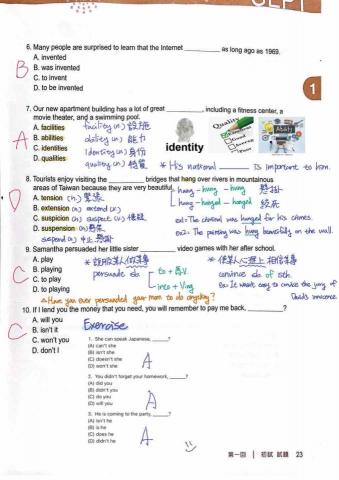 GEPT
1
6. Many people are surprised to learn that the Internet ________ as long ago as 1969.
B
A. invented
B. was invented
C. to invent
D. to be invented
7. Our new apartment building has a lot of great ________, including a fitness center, a
movie theater, and a swimming pool.
A
A. facilities facility (n.) 設施
B. abilities ability (n.) 能力
C. identities identity (n.) 身份
D. qualities quality (n.) 特質
identity
Quality
Ability
* His national ________ is important to him.
8. Tourists enjoy visiting the ________ bridges that hang over rivers in mountainous
areas of Taiwan because they are very beautiful.
D
A. tension (n.) 緊張
B. extension (n.) extend (v.)
C. suspicion (n.) suspect (v.) 懷疑
D. suspension (n.) 懸吊
suspend (v.) 中止, 懸掛
hang - hung - hung 懸掛
hang - hanged - hanged 絞死
ex1: The criminal was hanged for his crimes.
ex2: The painting was hung beautifully on the wall.
9. Samantha persuaded her little sister ________ video games with her after school.
C
A. play
B. playing
C. to play
D. to playing
* 說服某人做某事
persuade sb
to + 原V
into + Ving
* 使某人心裡上相信某事
convince sb of sth
Ex: It wasn't easy to convince the jury of
David's innocence.
Have you ever persuaded your mom to do anything?
10. If I lend you the money that you need, you will remember to pay me back, ________?
C
A. will you
B. isn't it
C. won't you
D. don't I
Exercise
1. She can speak Japanese, ______?
(A) can't she
(B) isn't she
(C) doesn't she
(D) won't she
A
2. You didn't forget your homework, ______?
(A) did you
(B) didn't you
(C) do you
(D) will you
A
3. He is coming to the party, ______?
(A) isn't he
(B) is he
(C) does he
(D) didn't he
A
第一回 | 初試 試題 23